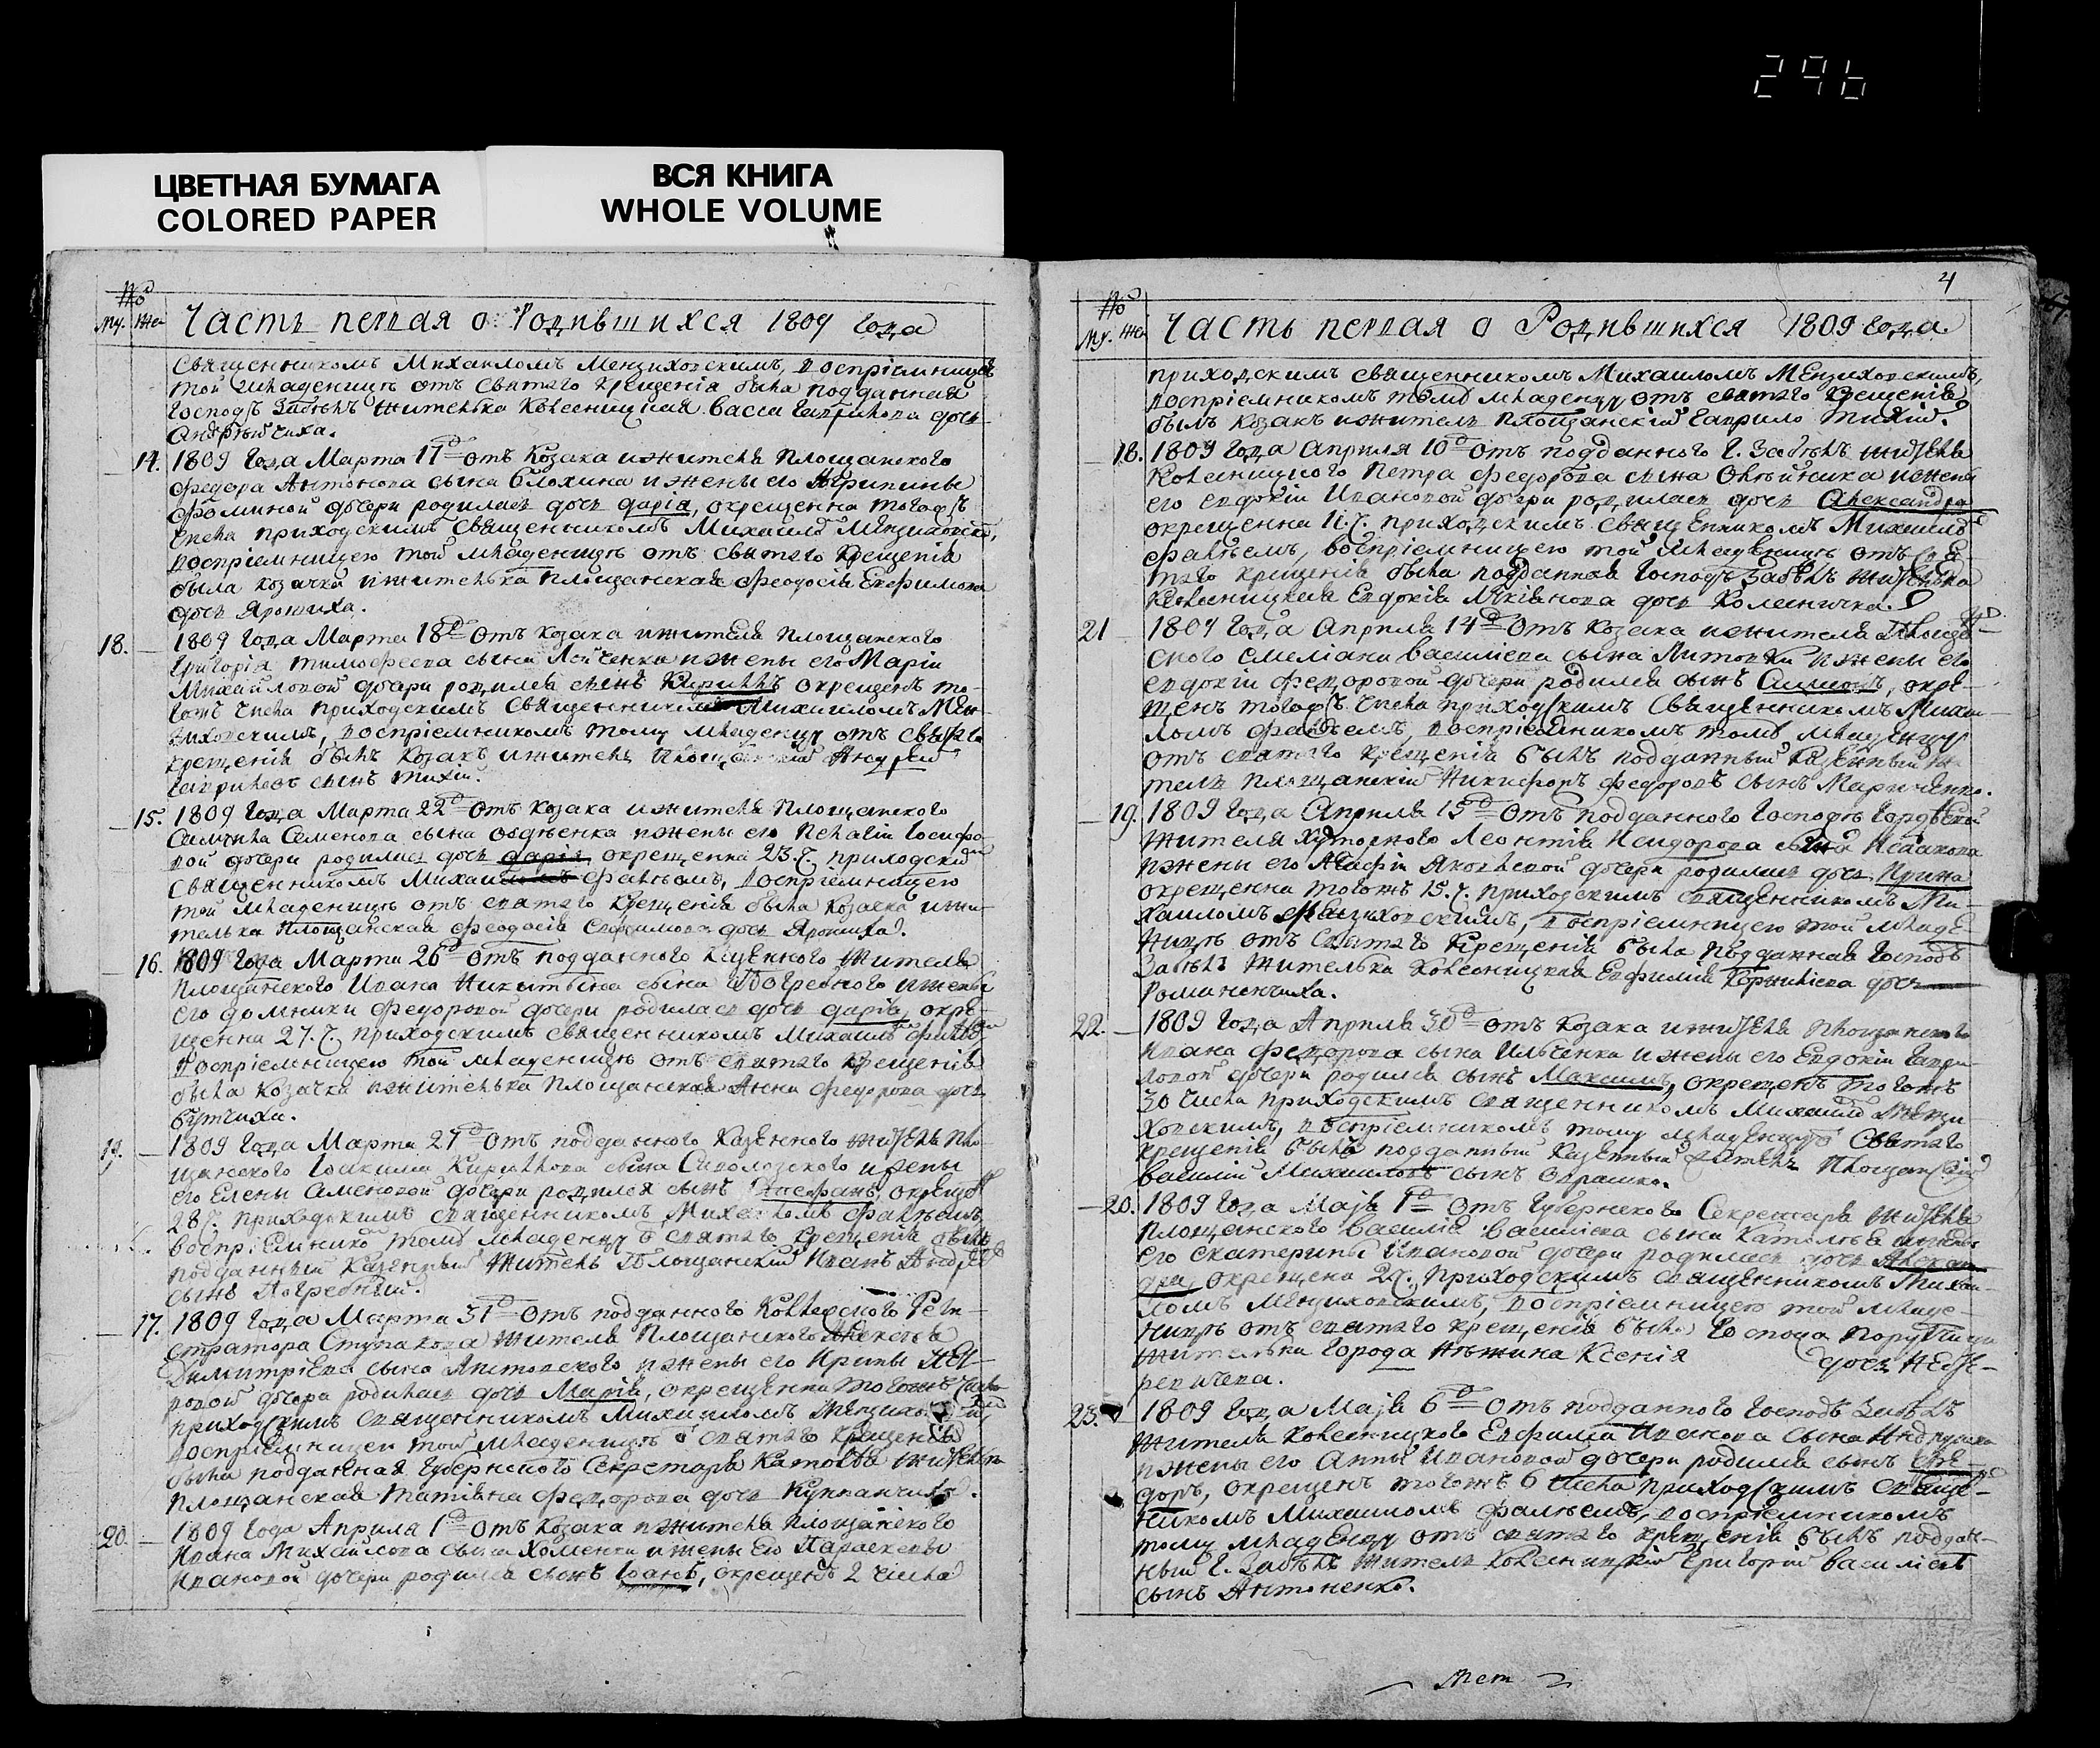 296
ЦВЕТНАЯ БУМАГА
COLORED PAPER
ВСЯ КНИГА
WHOLE VOLUME
№
Му. Же
Часть первая о Родившихся 1809 года
Священникомъ Михаиломъ Мензиховскимъ, воспріемницею
той младеницѣ отъ святаго крещенія была подданная
Господъ Забѣлъ жителька Колесницкая Васса Гаврилова дочь
Андрѣйчиха.
14. 1809 Года Марта 17 отъ Козака и жителя Площанского
Федора Антонова сына Блохина и жены его Агрипины
Фоминой дочери родилась дочь Дарія, окрещенна тогождъ
числа приходскимъ Священникомъ Михаиломъ Мензиховскі,
воспріемницею той младеницѣ отъ святаго крещенія
была козачка и жителька Площанская Феодосія Евфимова
дочь Ярошиха.
18. 1809 года Марта 18 отъ козака и жителя Площанского
Григорія Тимофеева сына Лойченка и жены его Маріи
Михайловой дочери родился сынъ Кириллъ окрещенъ то-
гожъ числа приходскимъ Священникомъ Михаиломъ Мен-
зиховскимъ, воспріемникомъ тому младенцу отъ святаго
крещенія былъ Козакъ и житель Площанскій Андрей
Гавриловъ сынъ Тихій.
15. 1809 Года Марта 22 отъ козака и жителя Площанского
Семена сына и жены его Пелагіи Іосифо-
вой дочери родилась дочь Дарія, окрещенна 23.ч. приходским
Священникомъ Михаиломъ Фалѣемъ, воспріемницею
той младеницѣ отъ святаго крещенія была козачка и жи-
телька Площанская Феодосія Евфимова дочь Ярошиха.
16. 1809 Года Марта 26 отъ подданного Казенного жителя
Площанского Ивана Никитина сына Погребного и жены
его Домники Федоровой дочери родилась дочь Дарія, окре-
щенна 27.ч. приходскимъ священникомъ Михаиломъ Фалѣем
воспріемницею той младеницѣ отъ святаго крещенія
была козачка и жителька Площанская Анна Федорова дочь
Бутчиха.
19. 1809 Года Марта 27 отъ подданного Казенного жителя Пло-
щанского Іоакима Кириллова сына Сиволозского и жены
его Елены Семеновой дочери родился сынъ Стефанъ, окрещен
28ч. приходскимъ священникомъ Михаиломъ Фалѣемъ
воспріемникомъ тому младенцу о святаго крещенія былъ
подданный Казенный житель Площанскій Иванъ Андреев
сынъ Погребный.
17. 1809 Года Марта 31 отъ подданного Коллежского Реги-
стратора Ступакова жителя Площанского Алексея
Димитріева сына Яновского и жены его Ирины Пет-
ровой дочери родилась дочь Марія, окрещенна тогожъ числа
приходскимъ священникомъ Михаиломъ
воспріемницею той младеницѣ о святаго крещенія
была подданная Губернского Секретаря жителька
Площанская Татіана Федорова дочь Куппанчиха.
20. 1809 Года Априля 1 отъ Козака и жителя Площанского
Ивана Михайлова сына Хоменка и жены его Параскевы
Ивановой дочери родился сынъ Іоанъ, окрещенъ 2 числа
4
№
Му. Же
Часть первая о Родившихся 1809 Года.
приходскимъ священникомъ Михаиломъ Мензиховскимъ,
воспріемникомъ тому младенцу отъ святаго крещенія
былъ козакъ и житель Площанскій Гаврило Тихій.
18. 1809 года Априля 10 отъ подданного Г. Забѣлъ жителя
Колесницкого Петра Федорова сына Олѣйника и жены
его Евдокіи Ивановой дочери родилась дочь Александра
окрещенна 11.ч. приходскимъ священникомъ Михаиломъ
Фалѣемъ, воспріемницею той младеницѣ отъ свя-
таго крещенія была подданная Господъ Забѣлъ жителька
Колесницкая Евдокія Лукіянова дочь Колесничка.
21 1809 Года Априля 14 отъ Козака и жителя Площан
ского Емеліяна Василіева сына Литовки и жены его
Евдокіи Федоровой дочери родился сынъ Симеонъ, окре-
щенъ тогождъ числа приходскимъ Священникомъ Михаи
ломъ Фалѣемъ, воспріемникомъ тому младенцу
отъ святаго крещенія былъ подданный Казенный жи
тель Площанскій Никифоръ Федоровъ сынъ Мариченко.
19. 1809 Года Априля 15 отъ подданного Господъ
жителя хуторного Леонтія Исидорова сына Исакова
и жены его Агафіи Яковлевой дочери родилась дочь Ирина
окрещенна тогожъ 15.ч. приходскимъ священникомъ Ми-
хаиломъ Мензиховскимъ, воспріемницею той младе-
ницѣ отъ святаго крещенія была подданная Господъ
Забѣлъ жителька Колесницкая Евфимія Корниліева дочь
Романенчиха.
22. 1809 Года Априля 30 отъ козака и жителя Площанского
Ивана Федорова сына Ильченка и жены его Евдокіи Гаври-
ловой дочери родился сынъ Максимъ, окрещенъ тогожъ
30 числа приходскимъ священникомъ Михаиломъ Мензи-
ховскимъ, воспріемникомъ тому младенцу о святаго
крещенія былъ подданный казенный житель Площанскій
Василій Михайловъ сынъ
20. 1809 Года Маія 1 отъ Губернского Секретаря жителя
Площанского Василія Василіева сына и жены
его Екатерины Ивановой дочери родилась дочь Алексан-
дра, окрещена 2ч. приходскимъ священникомъ Михаи-
ломъ Мензиховскимъ, воспріемницею той младе-
ницѣ отъ святаго крещенія была Госпожа
жителька города Нѣжина Ксенія дочь

23. 1809 Года Маія 6 отъ подданного Господъ Забѣлъ
жителя Колесницкого Евфимія Иванова сына
и жены его Анны Ивановой дочери родился сынъ Фео-
доръ, окрещенъ тогожъ 6 числа приходскимъ священ-
никомъ Михаиломъ Фалѣемъ, воспріемникомъ
тому младенцу отъ святаго крещенія былъ поддан-
ный Г. Забѣлъ житель Колесницкій Григорій Василіевъ
сынъ Антоненко.